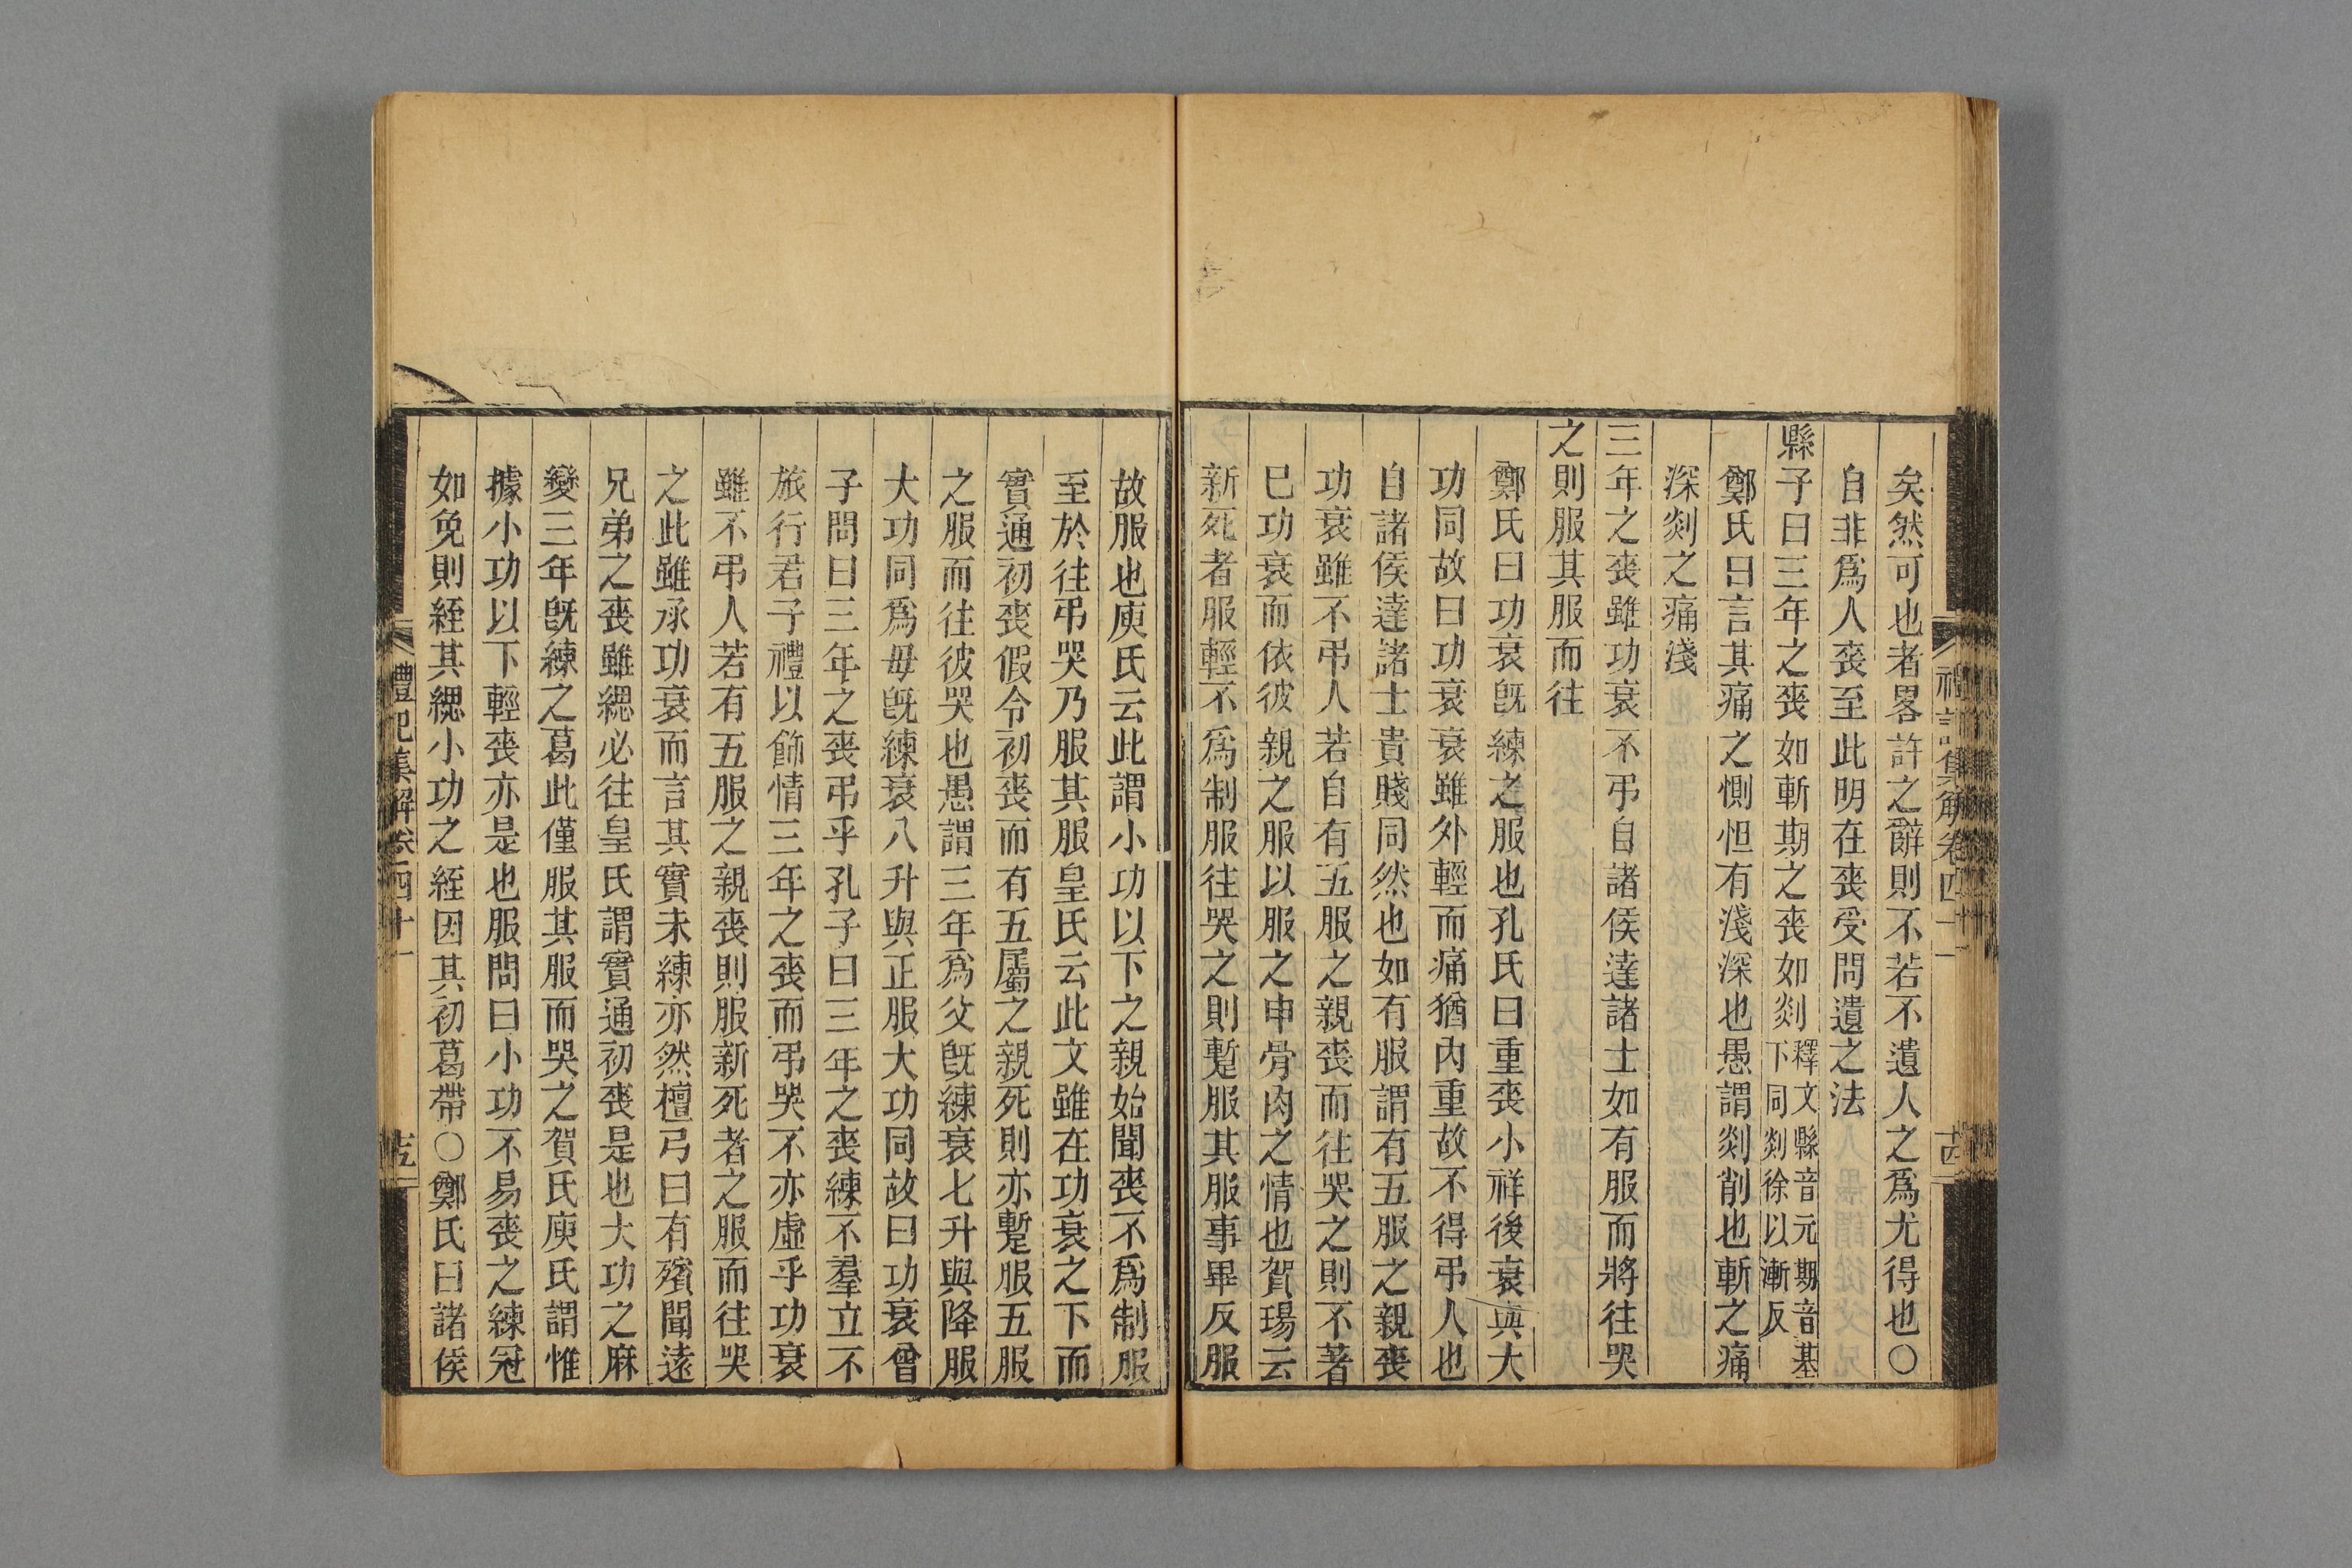 矣然可也者畧許之辭則不若不遺人之爲尤得也〇
自非爲人喪至此明在喪受問遺之法
縣子曰三年之喪如斬期之喪如剡釋文縣音元期音基下同剡徐以漸反
鄭氏曰言其痛之惻怛有淺深也愚謂剡削也斬之痛
深剡之痛淺
三年之喪雖功衰不弔自諸侯達諸士如有服而將往哭
之則服其服而往
鄭氏曰功衰旣練之服也孔氏曰重喪小祥後衰與大
功同故曰功衰衰雖外輕而痛猶內重故不得弔人也
自諸侯達諸士貴賤同然也如有服謂有五服之親喪
功衰雖不弔人若自有五服之親喪而往哭之則不著
巳功衰而依彼親之服以服之申骨肉之情也賀瑒云
新死者服輕不爲制服往哭之則蹔服其服事畢反服
故服也庾氏云此謂小功以下之親始聞喪不爲制服
至於往弔哭乃服其服皇氏云此文雖在功衰之下而
實通初喪假令初喪而有五屬之親死則亦蹔服五服
之服而往彼哭也愚謂三年爲父旣練衰七升與降服
大功同爲母旣練衰八升與正服大功同故曰功衰曾
子問曰三年之喪弔乎孔子曰三年之喪練不羣立不
旅行君子禮以飾情三年之喪而弔哭不亦虛乎功衰
雖不弔人若有五服之親喪則服新死者之服而往哭
之此雖承功衰而言其實未練亦然檀弓曰有殯聞遠
兄弟之喪雖緦必往皇氏謂實通初喪是也大功之麻
變三年旣練之葛此僅服其服而哭之賀氏庾氏謂惟
據小功以下輕喪亦是也服問曰小功不易喪之練冠
如免則絰其緦小功之絰因其初葛帶〇鄭氏曰諸侯
禮記集解卷四十一